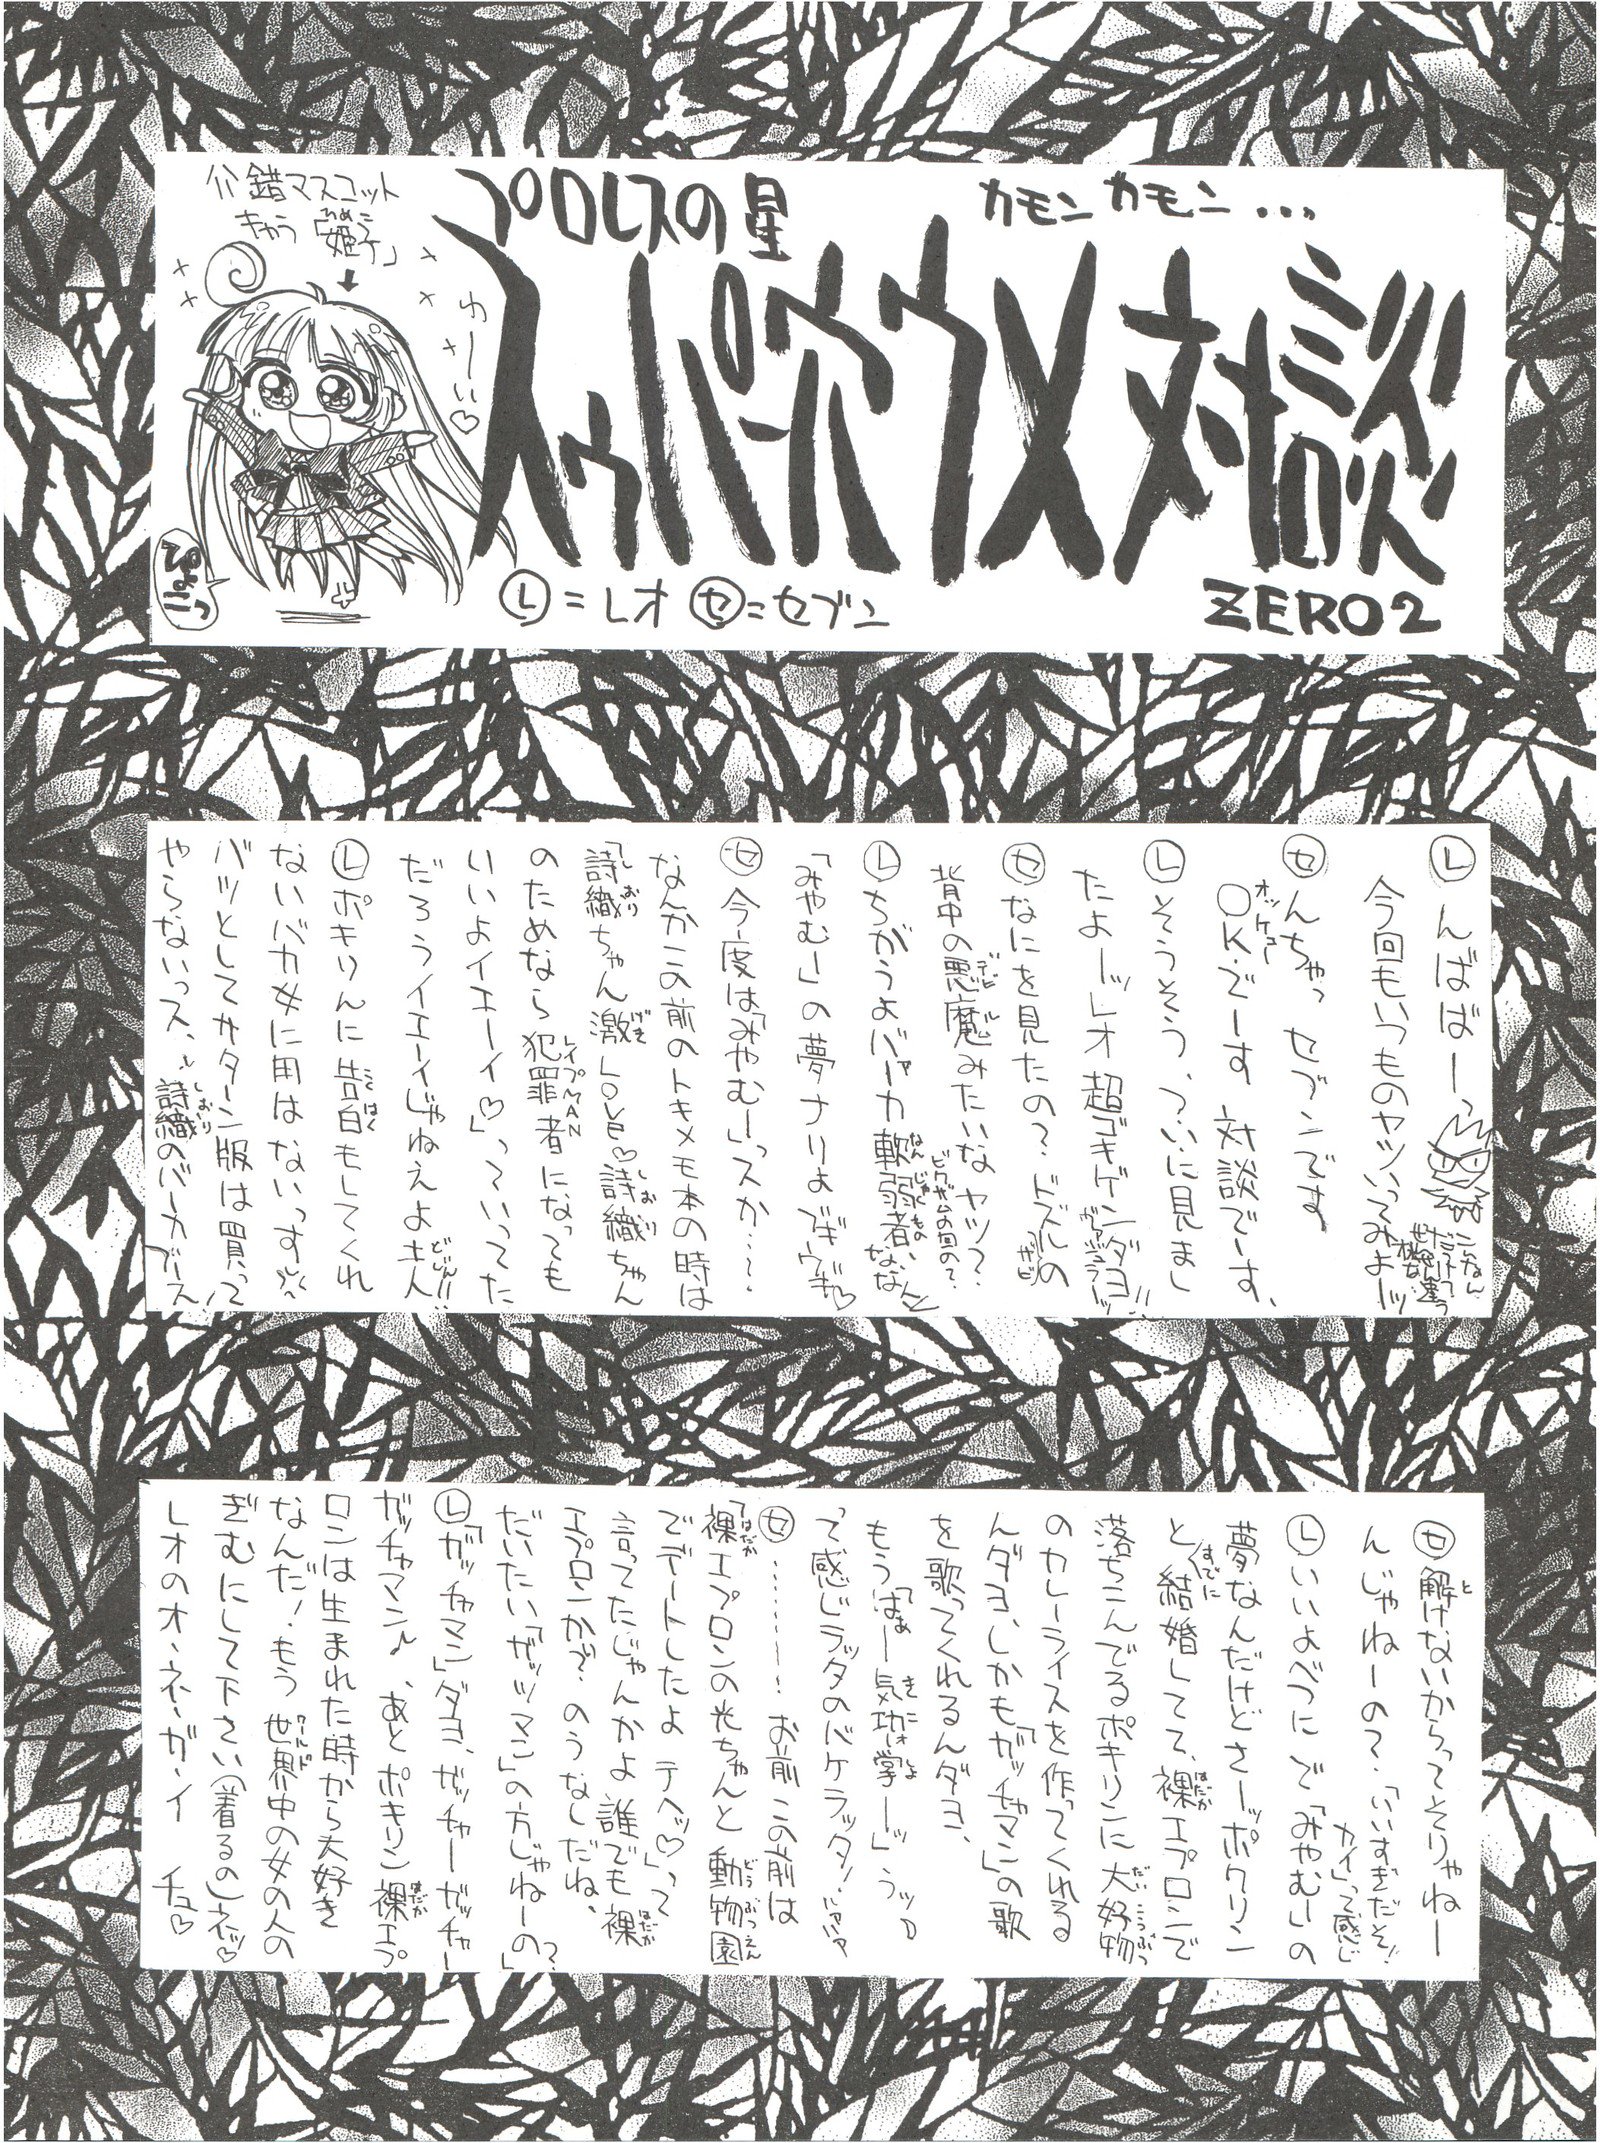 介錯マスコット
きゃら「姫子」
ひめこ
ゆーい♡
ぴょこっ
プロレスの星
カモン カモン...
スゥパーホウメ対談
ミソ
ロソ
Ⓛ=レオ ㋝=セブン
ZERO2
Ⓛんばばーっ
今回もいつものヤツいってみよーッ
㋝んちゃっ セブンです
OK.でーす 対談でーす、
オッケェー
Ⓛそうそう、つ、ついに見まし
たよーッレオ超ゴキゲンダヨ!!
㋝なにを見たの?ドズルの
背中の悪魔みたいなヤツ?
デビル
ビグザムの回の?
Ⓛちがうよバーカ軟弱者、
なんじゃくもの
「みやむー」の夢ナリよ
㋝今度は「みやむー」っスか……
なんかこの前のトキメモ本の時は
「詩織ちゃん激LOVE♡詩織ちゃん
しおり
げき
しおり
のためなら犯罪者になっても
レイプMAN
いいよイエーイ♡」っていってた
だろうイエーイじゃねえよ土人
どじん!!
Ⓛポキりんに告白もしてくれ
こくはく
ないバカ女に用はないっす
バツとしてサターン版は買って
やらないっス、詩織のバーカブース
しおり
㋝解けないからってそりゃねー
と
んじゃねーの?「いいすぎだぞ!
カイ」って感じ
Ⓛいいよべつにで「みやむー」の
夢なんだけどさーッポクリン
と結婚してて、裸エプロンで
すでに
はだか
落ちこんでるポキリンに大好物
だいこうぶつ
のカレーライスを作ってくれる
んダヨ、しかも「ガッチャマン」の歌
を歌ってくれるんダヨ、
もう「はぁー気功掌ーッ」うッ
きこうしょ
って感じラッタのバケラッタ!
㋝………! お前この前は
「裸エプロンの光ちゃんと動物園
はだか
どうぶつえん
でデートしたよテヘッ♡」って
言ってたじゃんかよ誰でも裸
はだか
エプロンかで?のうなしだね、
だいたい「ガッツマン」の方じゃねーの?」
Ⓛ「ガッチャマン」ダヨ、ガッチャーガッチャー
ガッチャマン♪、あとポキリン裸エプ
はだか
ロンは生まれた時から大好き
なんだ!もう世界中の女の人の
ワールド
ぎむにして下さい(着るの)ネッ♡
レオのオ・ネ・ガ・イ チュ♡